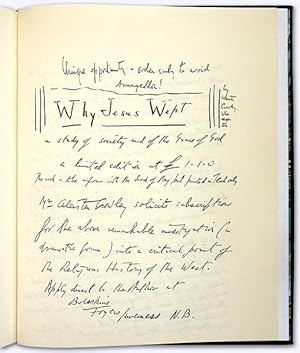 Unique opportunity – order early to avoid
Armageddon!
Why Jesus Wept
by
a study of society and of the Grace of God
a limited edition at £ 1-1-0
The work is uniform with the
Mr Aleister Crowley solicits subscription
for the above remarkable investigation (in
dramatic form) into a critical point of
the Religious History of the West.
Apply direct to the Author at
Boleskine
Foyers Inverness N.B.